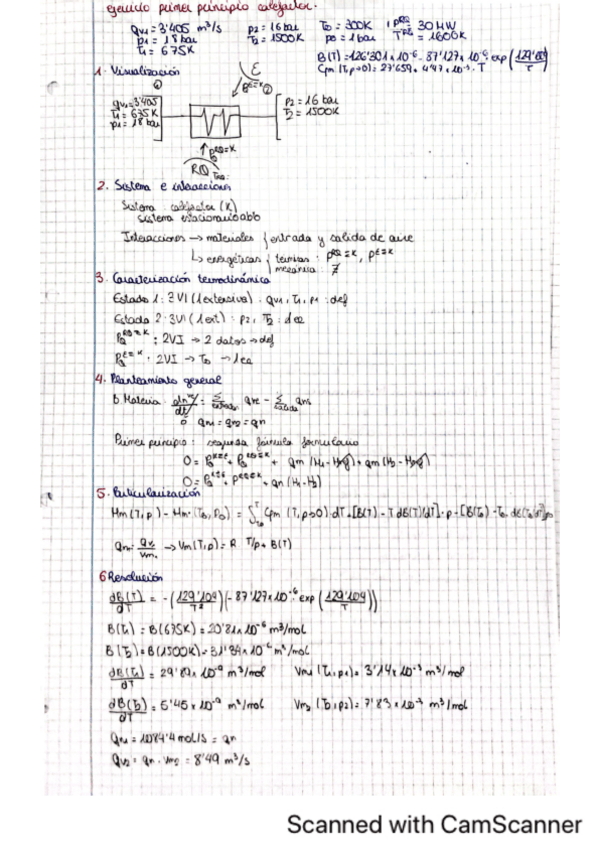 ejercicio primer principio calefactor.
qv1 = 3'405 m³/s p2 = 16 bar T0 = 300K PRQ = 30 MW
p1 = 18 bar T2 = 1500K p0 = 1 bar TRQ = 1600K
T1 = 675K
B(T) = 126'301 x 10⁻⁶ - 87'127 x 10⁻⁶ exp(129'109/T)
Cpm (T, p→0) = 27'659 +
1. Visualización
qv1 = 3'405
T1 = 675K
p1 = 18 bar
p2 = 16 bar
T2 = 1500K
2. Sistema e interacciones
Sistema: calefactor (K)
Sistema estacionario abb
Interacciones → materiales { entrada y salida de aire
↳ energéticas { térmicas: PRQ=K, PE=K
mecánica: ∄
3. Caracterización termodinámica
Estado 1: 3VI (1 extensiva): qv1, T1, p1: def
Estado 2: 3VI (1 ext): p2, T2: 1 ec
: 2VI → 2 datos → def
: 2VI → T0 → 1 ec
4. Planteamiento general
B. Materia: = Σ entradas qne - Σ salida qns
qn1 = qn2 = qn
Primer principio: segunda fórmula formulario
+ qn (H1 - H2)
5. Particularización
Hm (T, p) - Hm (T0, p0) = ∫ Cpm (T, p→0) dT + [B(T) - T dB(T)/dT] · p - [B(T0) - T0 dB(T0)/dT] p0
qn = qv/Vm → Vm (T, p) = R T/p + B(T)
6 Resolución
dB(T)/dT = -(129'109/T²)(-87'127x10⁻⁶ exp(129'109/T))
B(T1) = B(675K) = 20'81 x 10⁻⁶ m³/mol
B(T2) = B(1500K) = 31'84 x 10⁻⁶ m³/mol
dB(T1)/dT = x 10⁻⁹ m³/mol Vm1 (T1, p1) = 3'14 x 10⁻³ m³/mol
dB(T2)/dT = 5'45 x 10⁻⁹ m³/mol Vm2 (T2, p2) = 7'83 x 10⁻³ m³/mol
qn1 = 1084'4 mol/s = qn
qv2 = qn · vm2 = 8'49 m³/s
Scanned with CamScanner